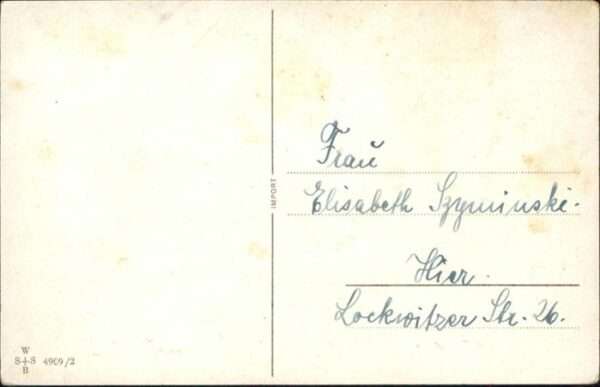 Fraŭ
Elisabeth Szyminski.
Hier.
Lockwitzer Str. 26.
IMPORT
W
S+S
B
4909/2